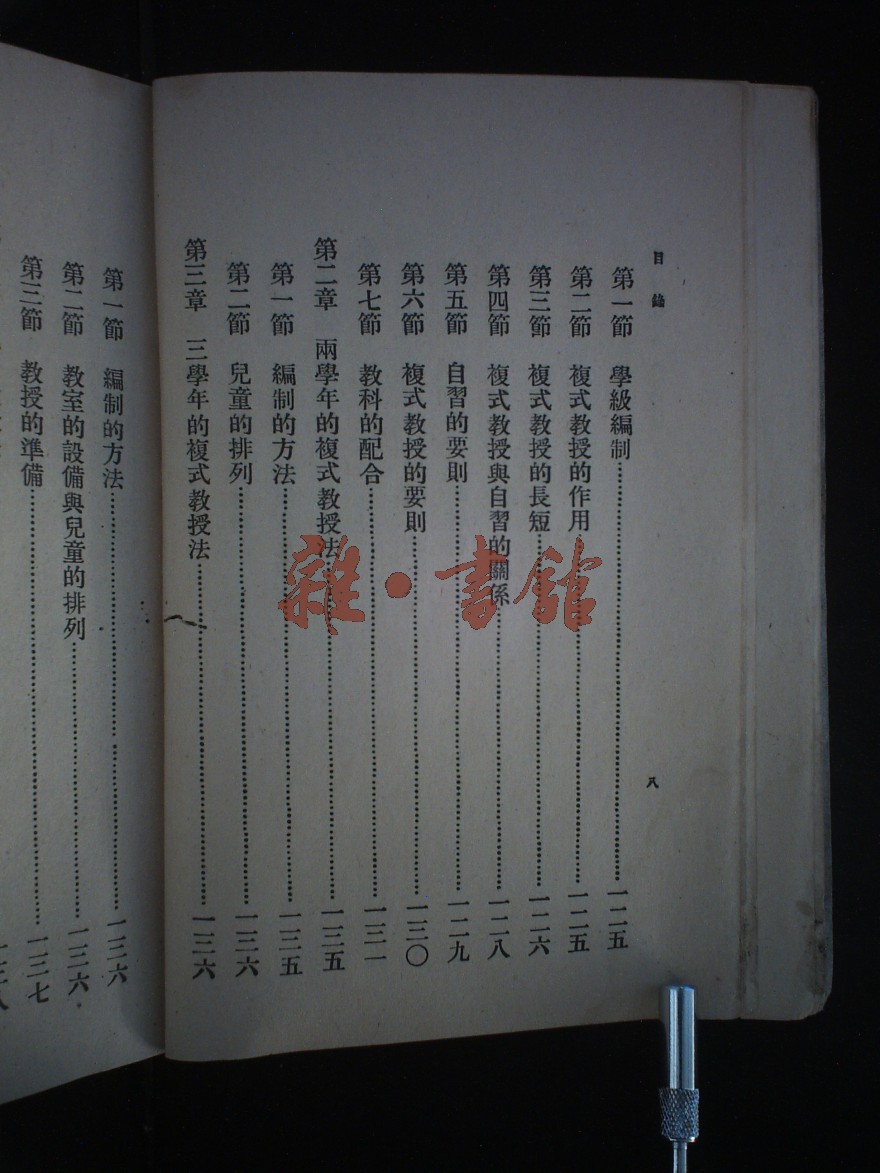 目錄
八
第一節 學級編制……一二五
第二節 複式教授的作用……一二五
第三節 複式教授的長短……一二六
第四節 複式教授與自習的關係……一二八
第五節 自習的要則……一二九
第六節 複式教授的要則……一三〇
第七節 教科的配合……一三一
第二章 兩學年的複式教授法……一三五
第一節 編制的方法……一三五
第二節 兒童的排列……一三六
第三章 三學年的複式教授法……一三六
第一節 編制的方法……一三六
第二節 教室的設備與兒童的排列……一三六
第三節 教授的準備……一三七
雜·書館